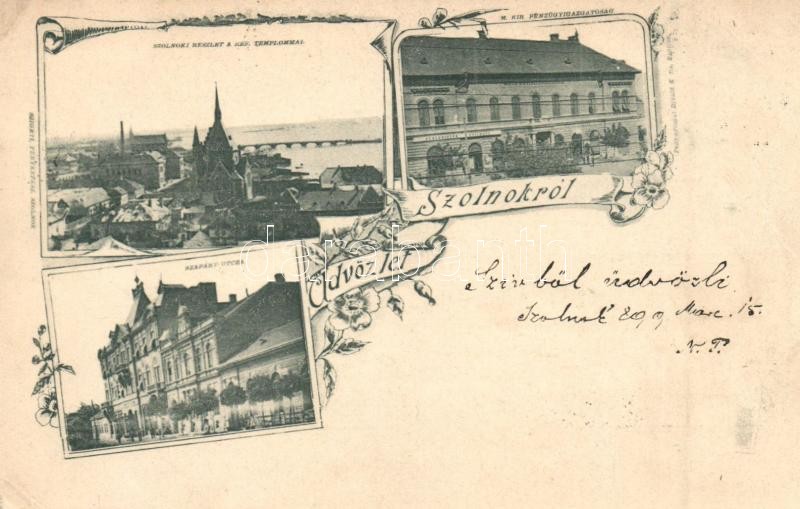 SZOLNOKI RÉSZLET A REF. TEMPLOMMAL
M. KIR. PÉNZÜGYIGAZGATÓSÁG
Szolnokról
Üdvözlet
SZAPÁRY-UTCZA
darabanth
Szivből üdvözli
Szolnok 899 Marc. 15.
N. P.